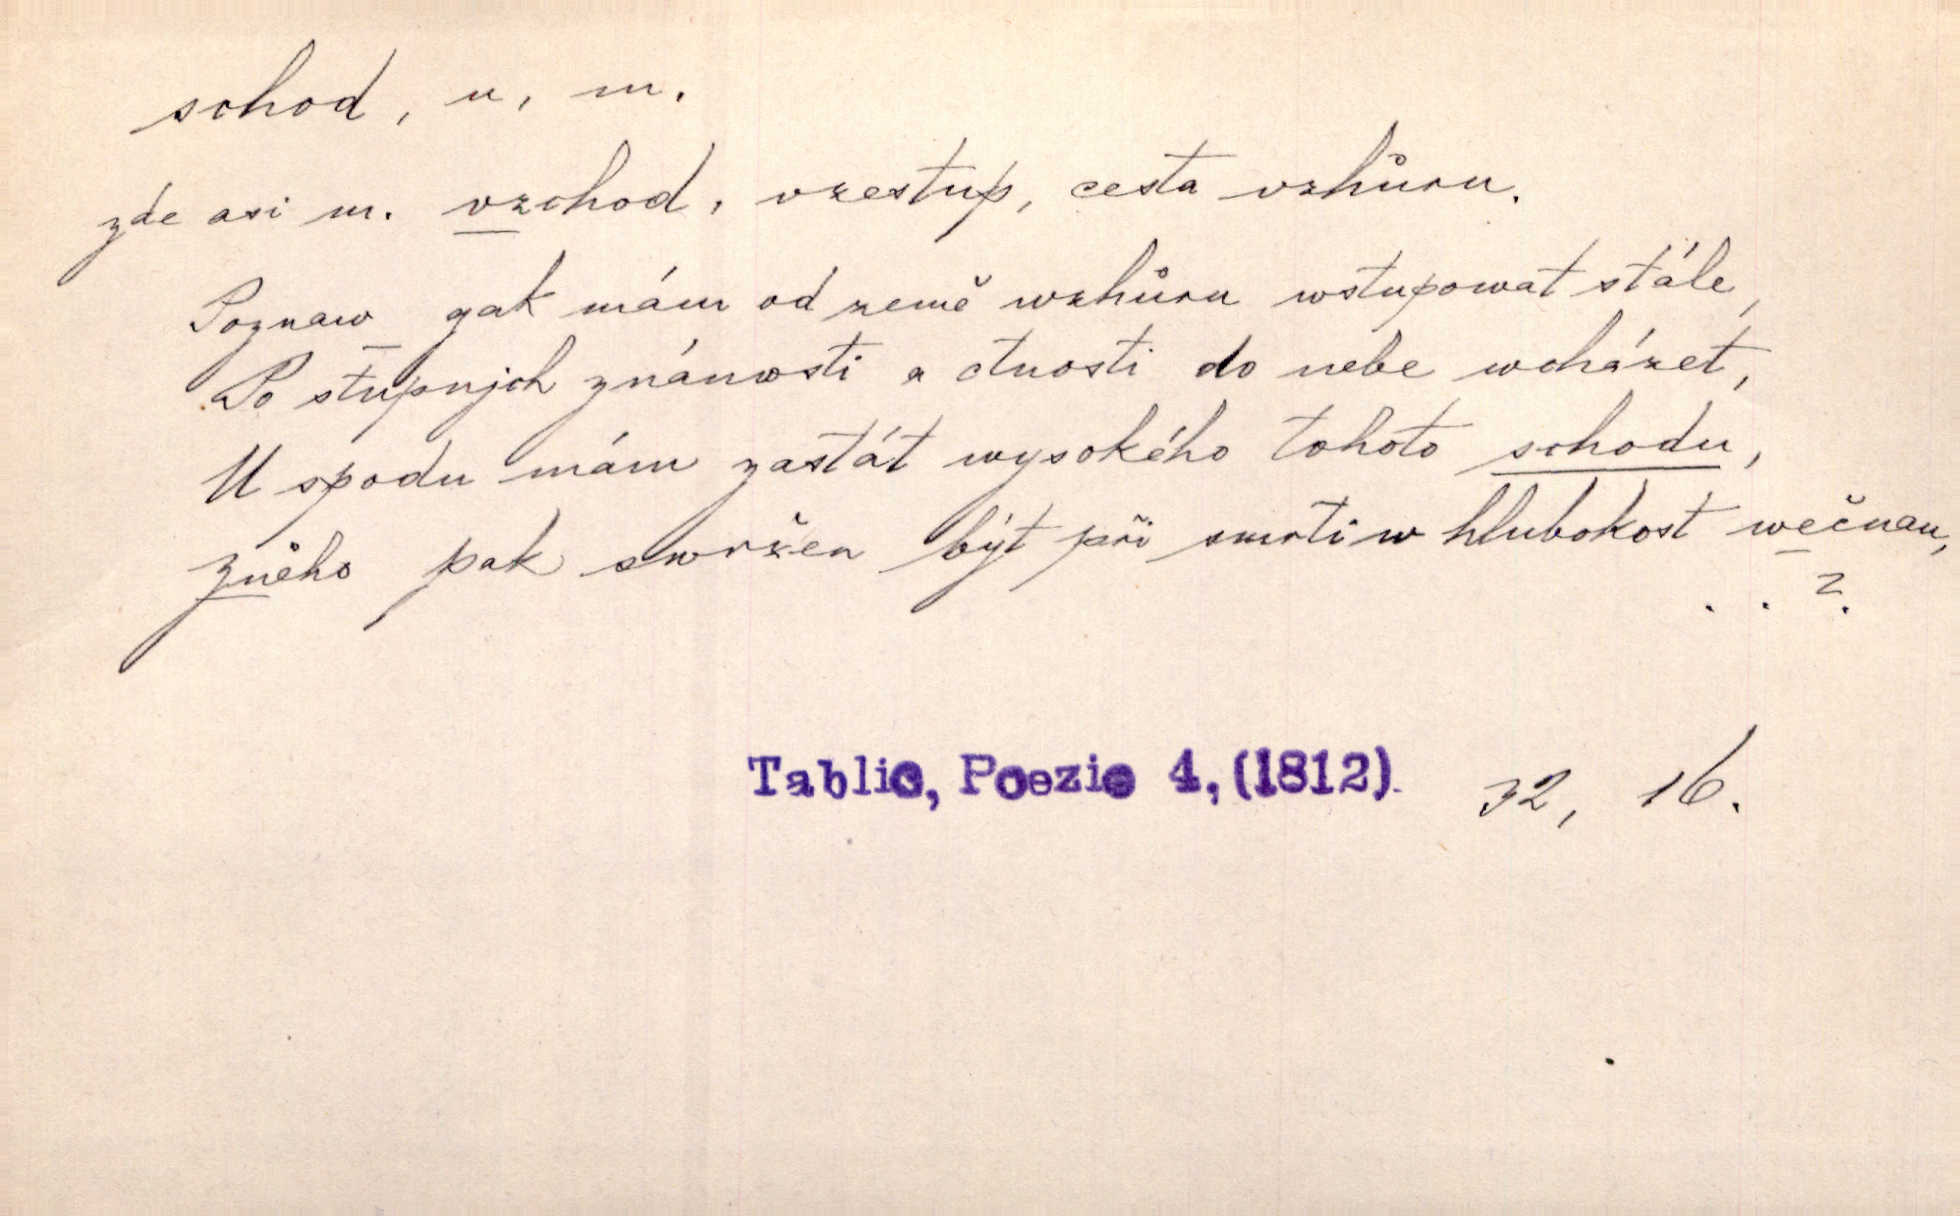 schod, u, m.
zde asi m. vzchod, vzestup, cesta vzhůru.
Poznaw gak mám od země wzhůru wstupowat stále,
Po stupnjch známosti a ctnosti do nebe wcházet,
U spodu mám zastát wysokého tohoto schodu,
zněho pak swržen být při smrti w hlubokost wěčnau,
. . ?
Tablic, Poezie 4, (1812). 32, 16.